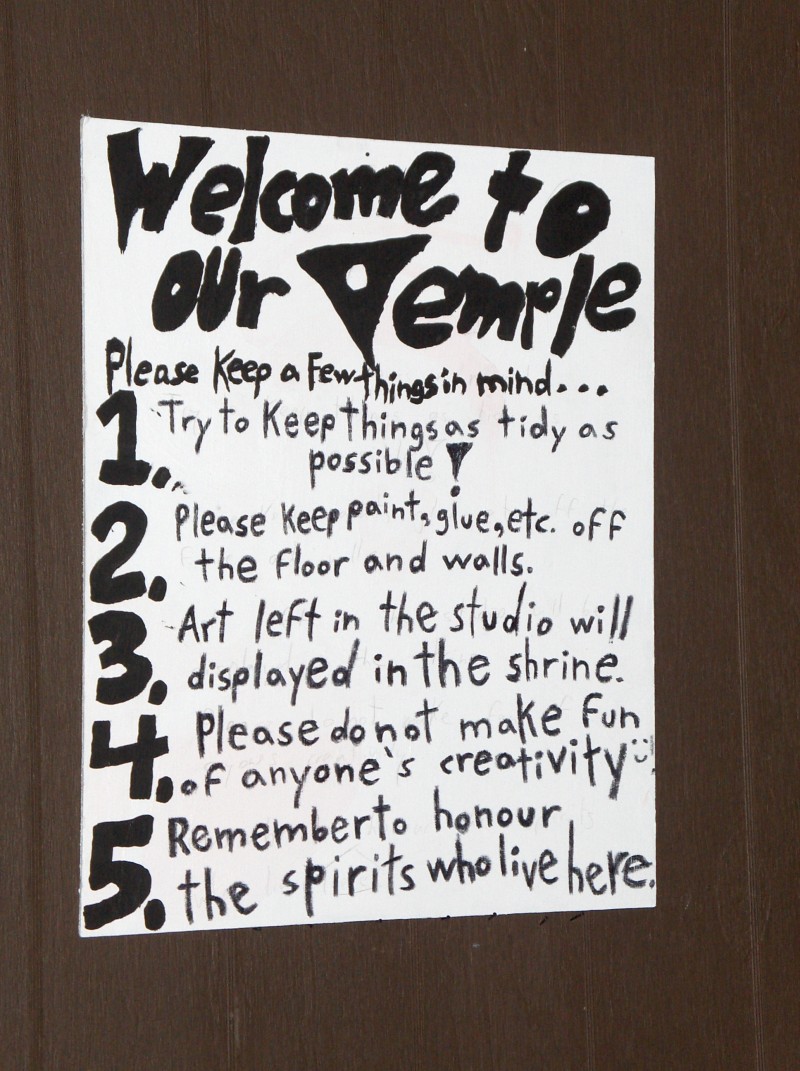 Welcome to
our Temple
Please Keep a Few things in mind...
1. Try to Keep things as tidy as
possible!
2. Please Keep paint, glue, etc. off
the floor and walls.
3. Art left in the studio will
displayed in the shrine.
4. Please do not make fun
of anyone's creativity
5. Remember to honour
the spirits who live here.